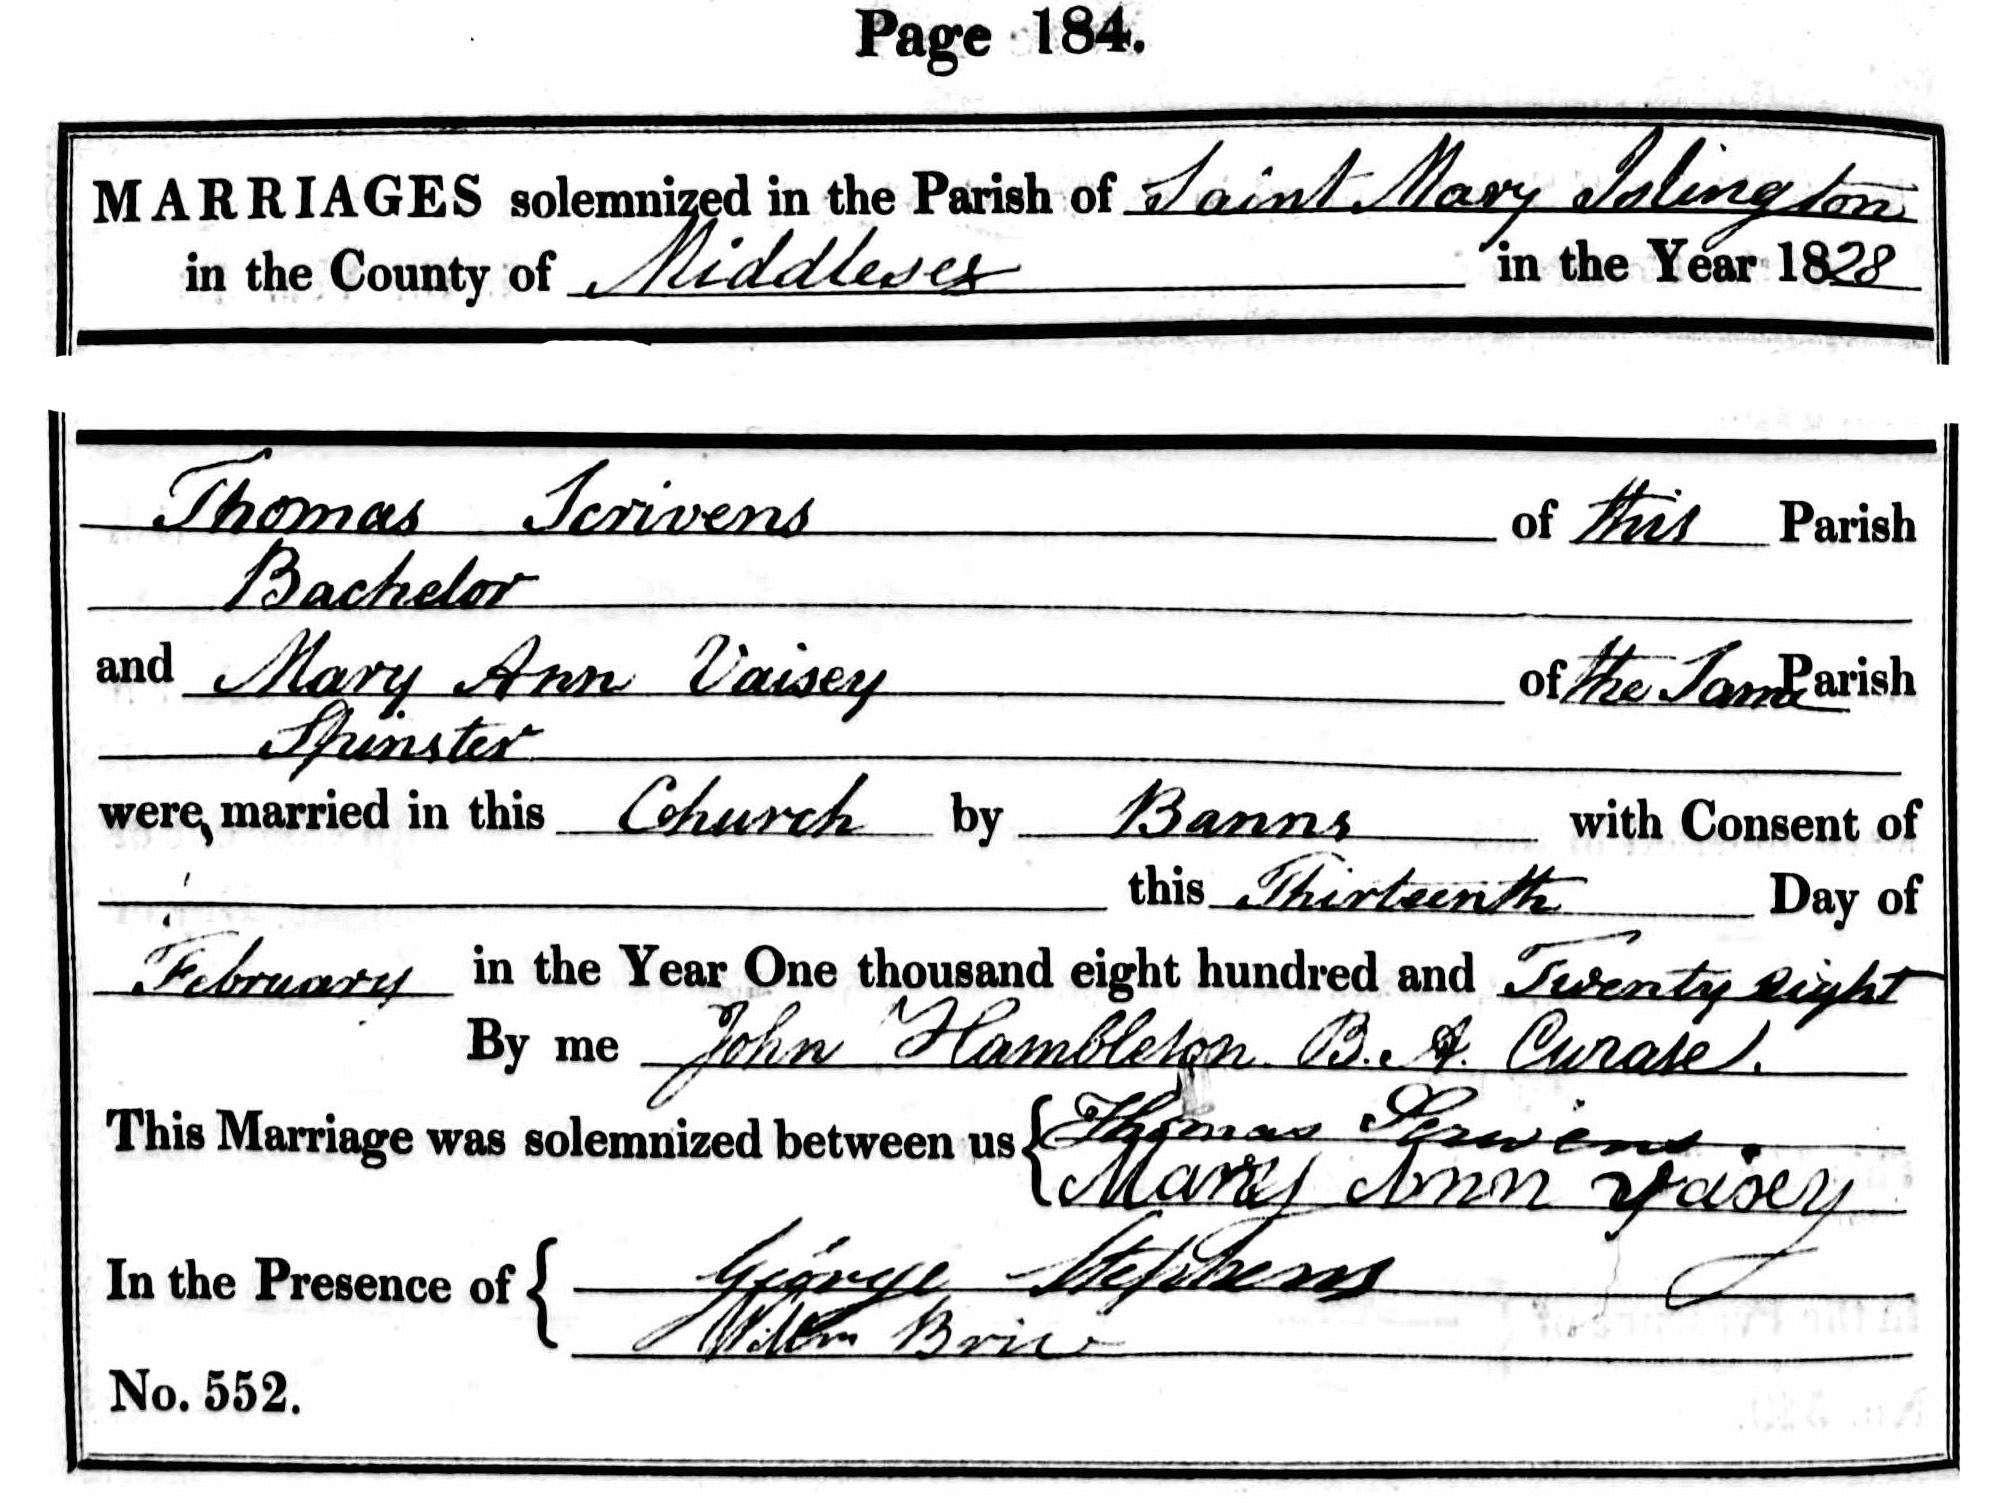 Page 184.
MARRIAGES solemnized in the Parish of Saint Mary Islington
in the County of Middlesex in the Year 1828
Thomas Scrivens of this Parish
Bachelor
and Mary Ann Vaisey of the Same Parish
Spinster
were married in this Church by Banns with Consent of
this Thirteenth Day of
February in the Year One thousand eight hundred and Twenty eight
By me John Hambleton B.A. Curate.
This Marriage was solemnized between us { Thomas Scrivens.
Mary Ann Vaisey
In the Presence of { George Stephens
Willm Brice
No. 552.